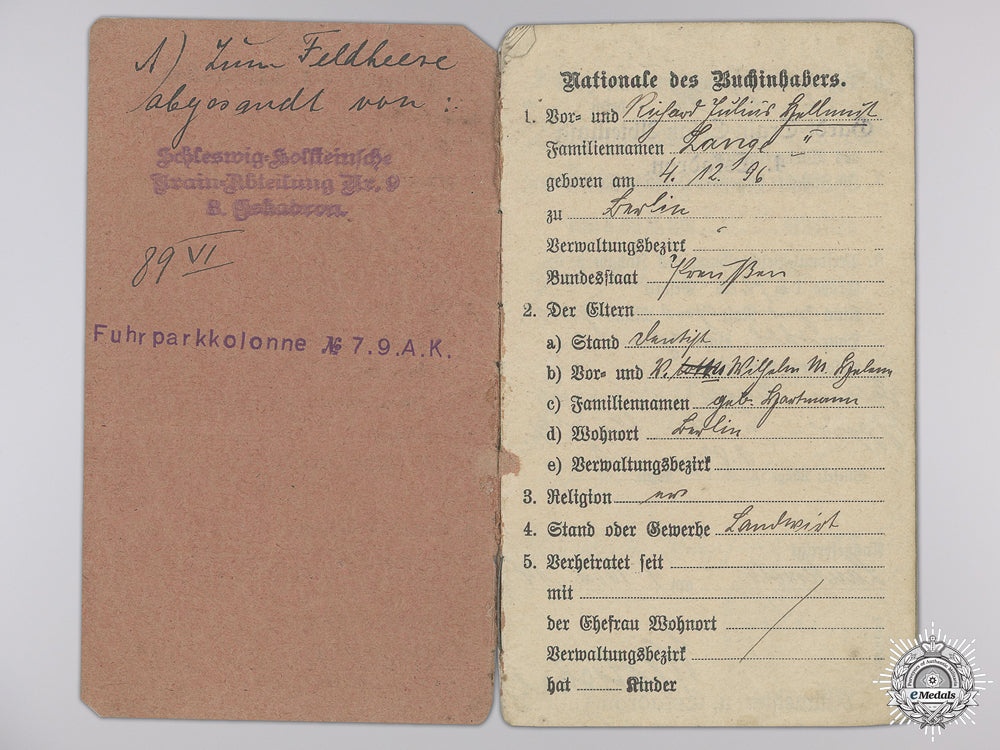 A) Zum Feldheere
abgesandt von :
Schleswig-Holsteinsche
Train-Abteilung Nr. 9
3. Eskadron.
89 VI
Fuhrparkkolonne № 7.9.A.K.
Nationale des Buchinhabers.
1. Vor- und Richard Julius Hellmut
Familiennamen Lange
geboren am 4. 12. 96
zu Berlin
Verwaltungsbezirk
Bundesstaat Preußen
2. Der Eltern
a) Stand Dentist
b) Vor- und V. Wilhelm M. Helene
c) Familiennamen geb. Hartmann
d) Wohnort Berlin
e) Verwaltungsbezirk
3. Religion ev
4. Stand oder Gewerbe Landwirt
5. Verheiratet seit
mit
der Ehefrau Wohnort
Verwaltungsbezirk
hat Kinder
eMedals